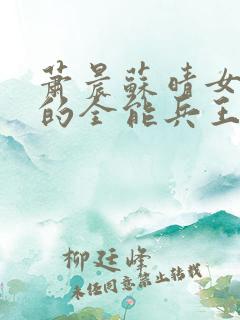 蕭晨蘇晴女
的全能兵王
柳廷峰
未经同意禁止转载